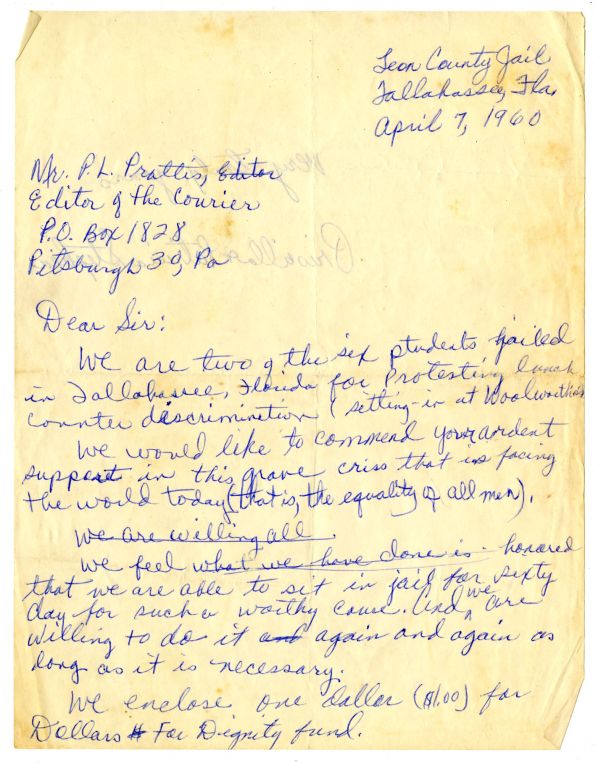 Leon County Jail
Tallahassee, Fla.
April 7, 1960
Mr. P.L. Prattis, Editor
Editor of the Courier
P.O. Box 1828
Pittsburgh 30, Pa
Dear Sir:
We are two of the six students jailed
in Tallahassee, Florida for Protesting lunch
counter discrimination (setting-in at Woolworth's)
We would like to commend your ardent
support in this grave criss that is facing
the world today (that is, the equality of all men).
We are willing all.
We feel what we have done is honored
that we are able to sit in jail for sixty
day for such a worthy cause. And we are
willing to do it and again and again as
long as it is necessary.
We enclose one dollar ($1.00) for
Dollars For Dignity fund.